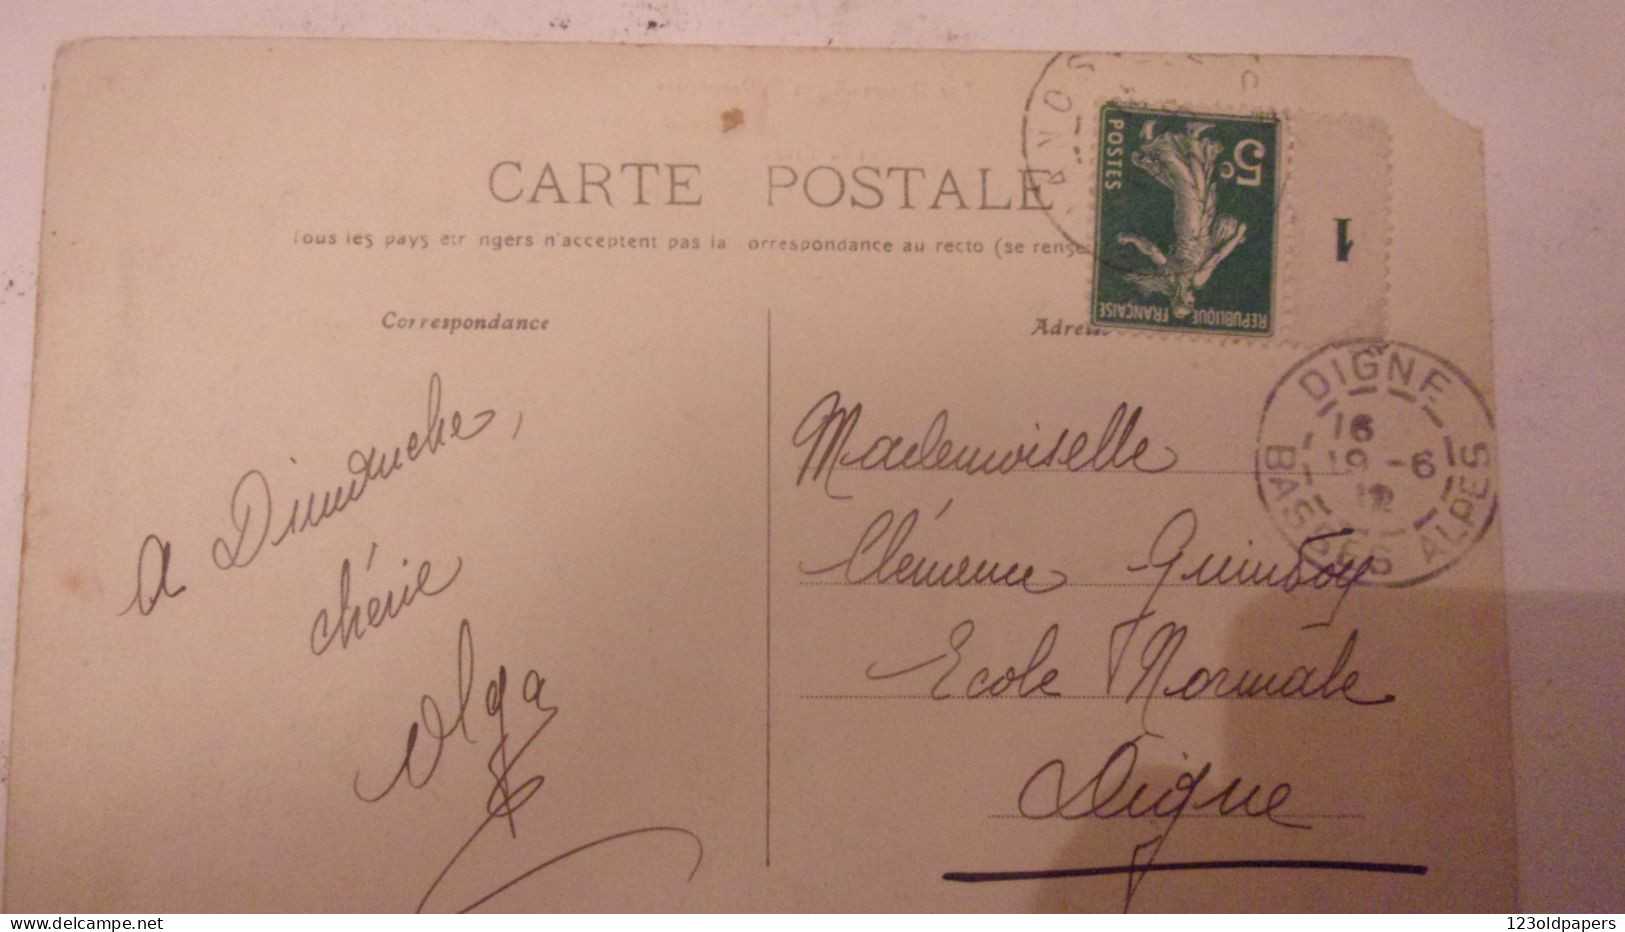 CARTE POSTALE
Tous les pays étrangers n'acceptent pas la correspondance au recto (se rense
Correspondance
Adresse
5c
POSTES
REPUBLIQUE FRANÇAISE
1
DIGNE
16
19 - 6
12
BASSES ALPES
A Dimanche,
chérie
Olga
Mademoiselle
Clémence
Ecole Normale
Digne
123oldpapers